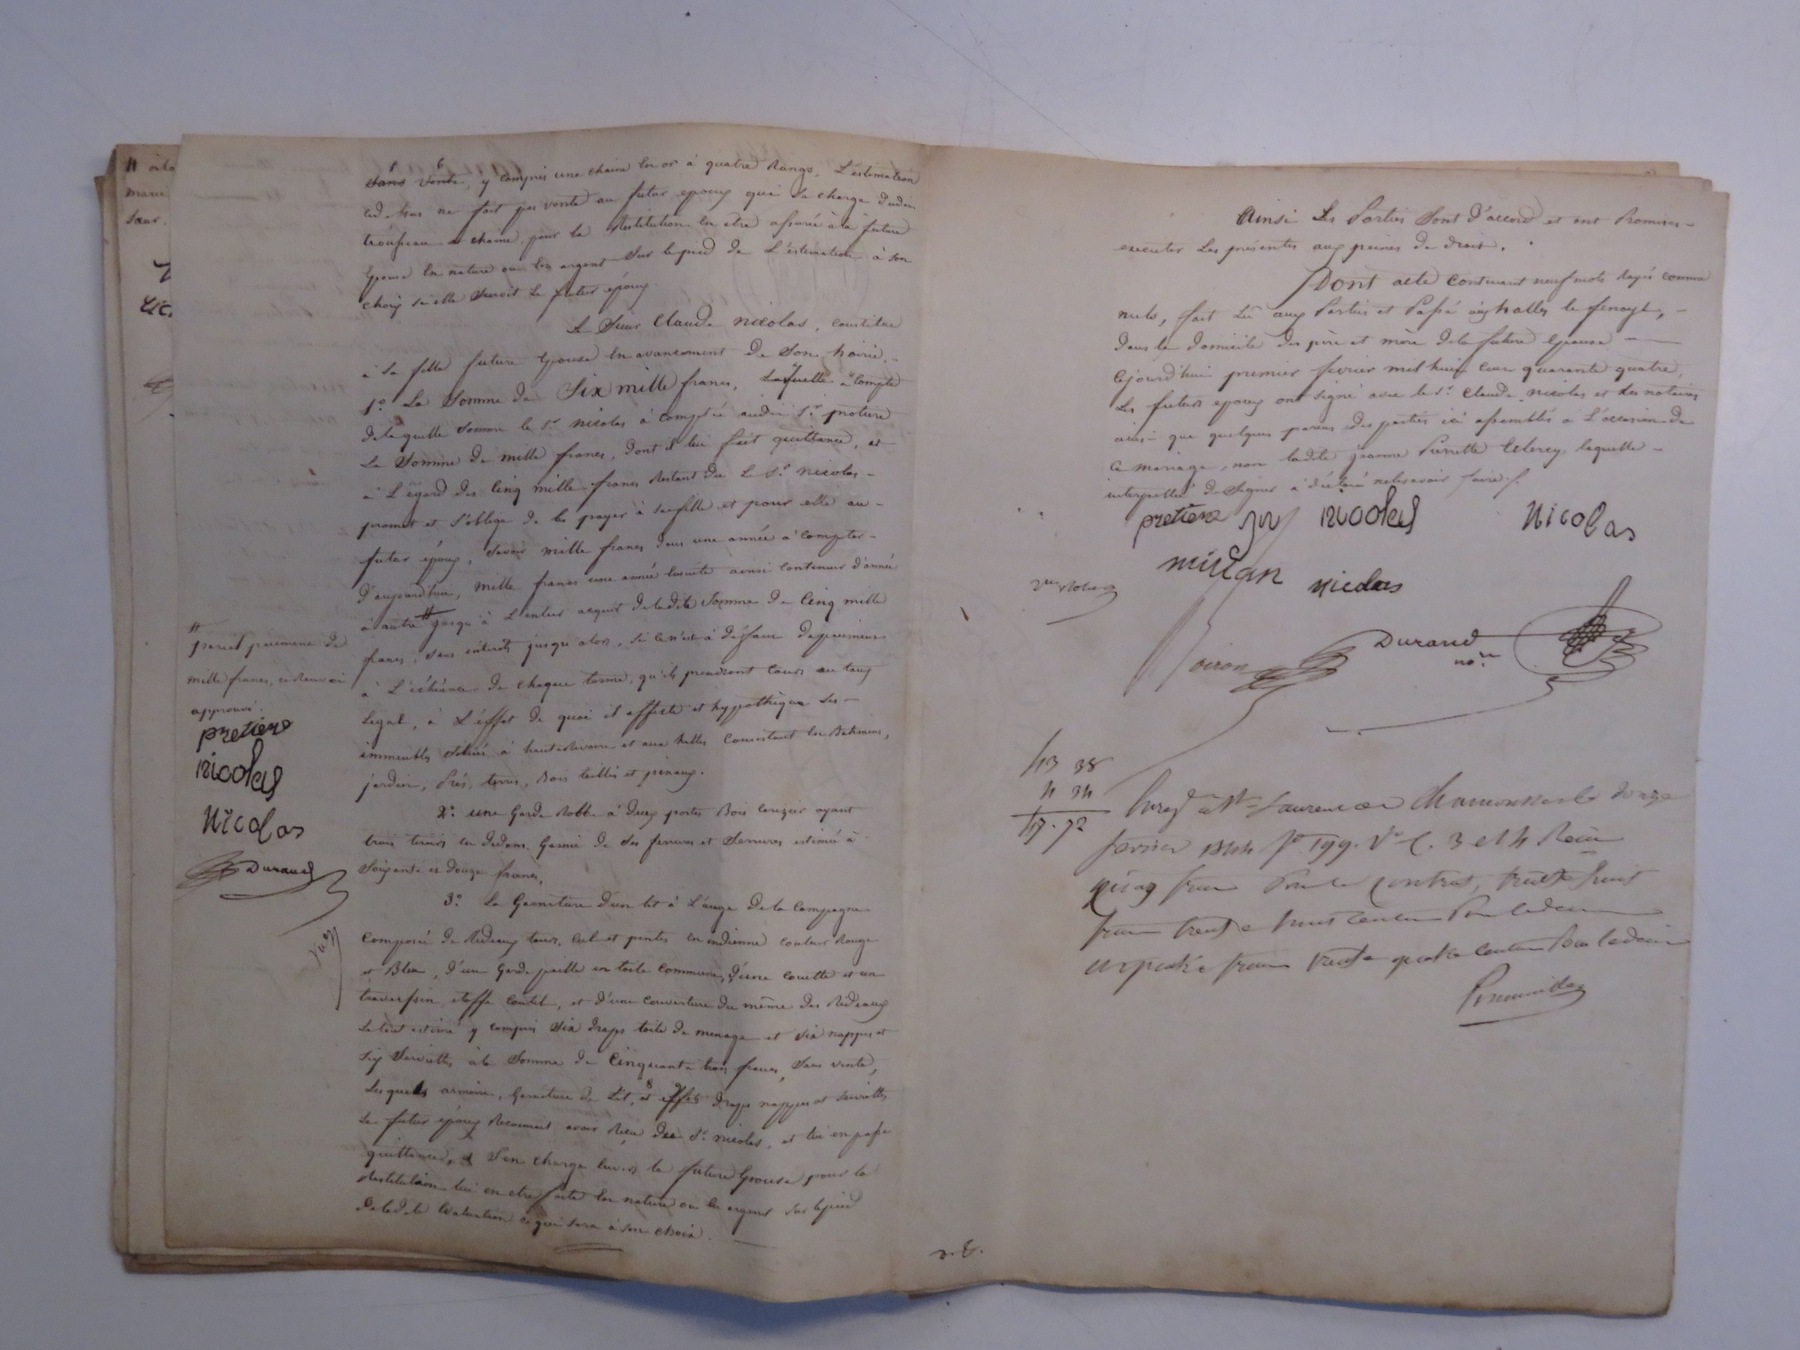 sans vente, y compris une chaine en or à quatre Rangs. L'estimation
ne fait pas vente au futur epoux qui se charge dudit
trousseau et chaine, pour la Restitution en etre assurée à la future
Epouse en nature ou en argent sur le pied de L'estimation à son
choix si elle survit le futur époux.
Le Sieur Claude nicolas, constitue
à sa fille future Epouse en avancement de son hoirie,
1.° La Somme de Six mille francs, Laquelle à compte
de laquelle Somme le S.r nicolas à compté audit S.r
La Somme de mille francs, dont il lui fait quittance, et
à L'égard des Cinq mille francs Restant due Le S.r nicolas
promet et s'oblige de les payer à sa fille et pour elle au
futur époux, Savoir mille francs dans une année à compter
d'aujourd'hui, mille francs une année ensuite ainsi continuer d'année
à autre # jusqu'à L'entier acquit de ladite Somme de Cinq mille
francs, sans intérêt jusqu'alors, si ce n'est à défaut de paiement
à L'échéance de chaque terme, qu'ils prendront cours au taux
Legal, à L'effet de quoi il affecte et hypothèque Ses
immeubles Situés à hauterivoire et aux halles Consistant en Batiments,
jardin, Prés, terres, Bois taillis et pineaux.
2.° une Garde Robbe à Deux portes Bois Cerisier ayant
trois tiroirs en dedans Garnie de Ses ferrures et Serrures estimée à
Soixante et Douze francs,
3.° La Garniture d'un lit à L'usage de la Campagne
Composée de Rideaux tours, Ciel et pentes en indienne couleur Rouge
et Bleu, d'un Garde paille en toile commune, d'une couette et un
traversin etoffe coutil, et d'une couverture du même des Rideaux
Le tout estimé y compris Six Draps toile de menage et Six nappes et
Six Serviettes à la Somme de Cinquante trois francs, Sans vente,
Lesquels armoire, Garniture de Lit, et effets Draps nappes et serviettes
Le futur époux Reconnait avoir Reçu du S.r nicolas, et lui en passe
quittance, et S'en charge envers la future Epouse pour la
Restitution lui en etre faite en nature ou en argent sur le pied
de ladite Evaluation ce qui sera à son choix.
#
pareil paiement de
mille francs, ce Renvoi
approuvé.
nicolas
Nicolas
Durand
Ainsi Les Parties Sont d'accord et ont Promises
executer Les présentes aux peines de droit.
Dont acte contenant neuf mots Rayé comme
nuls, fait Lu aux Parties et Passé aux halles le fenoyl,
dans le domicile des père et mère de la future epouse
Cejourd'hui premier février mil huit cent quarante quatre,
Les futurs epoux ont signé avec le S.r Claude nicolas et Les notaires
ainsi que quelques parens des parties ici assemblés à L'occasion de
ce mariage, non ladite jeanne Pierrette laquelle
interpellée de Signer a déclaré ne le savoir faire.
nicolas Nicolas
nicolas
Durand
no.re
13 38
4 34
17. 72
Enreg.é à St Laurent de Chamousset le Douze
février 1844 f.° 199. V.° C. 3 et 4 Reçu
cinq francs Pour le Contrat, treize
francs trente huit centimes Pour
et quatre francs trente quatre centimes Pour